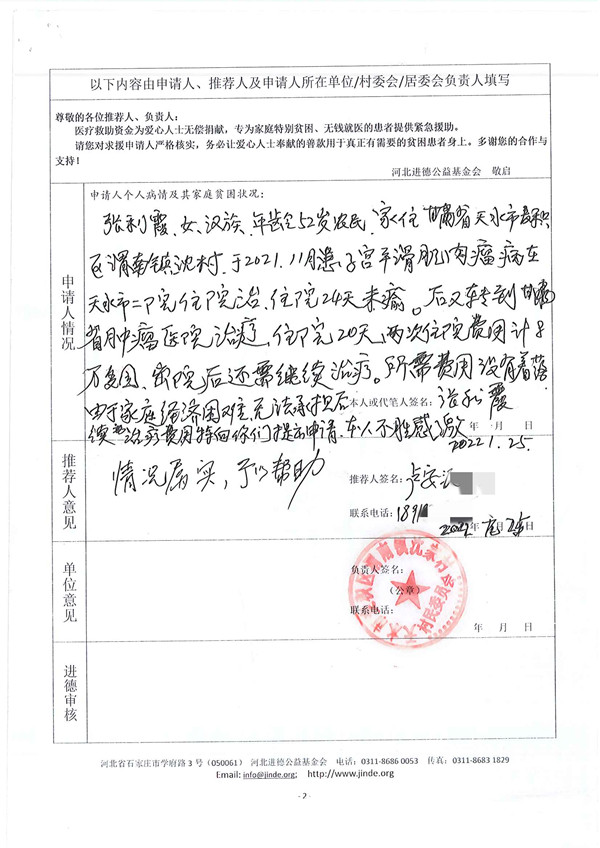 以下内容由申请人、推荐人及申请人所在单位/村委会/居委会负责人填写
尊敬的各位推荐人、负责人:
医疗救助资金为爱心人士无偿捐献,专为家庭特别贫困、无钱就医的患者提供紧急援助。
请您对求援申请人严格核实,务必让爱心人士奉献的善款用于真正有需要的贫困患者身上。多谢您的合作与
支持!
河北进德公益基金会 敬启
申请人情况
申请人个人病情及其家庭贫困状况:
张利霞、女、汉族、年龄52岁农民、家住甘肃省天水市麦积
区渭南镇沈村、于2021.11月患子宫平滑肌肉瘤病在
天水市二院住院治、住院24天未瘉。后又转到甘肃
省肿瘤医院治疗、住院20天、两次住院费用计8
万多国、出院后还需继续治疗。所需费用没有着落
由于家庭经济困难无法承担后
本人或代笔人签名:张利霞
续治疗费用特向你们提出申请.本人不胜感激
年 月 日
2022.1.25.
推荐人意见
情况属实,予以帮助
推荐人签名:卢安
联系电话:189
2022年 月 日
单位意见
负责人签名:
(公章)
联系电话:
年 月 日
村民委员会
进德审核
河北省石家庄市学府路 3 号(050061) 河北进德公益基金会 电话:0311-8686 0053 传真:0311-8683 1829
Email: info@jinde.org; http://www.jinde.org
- 2 -